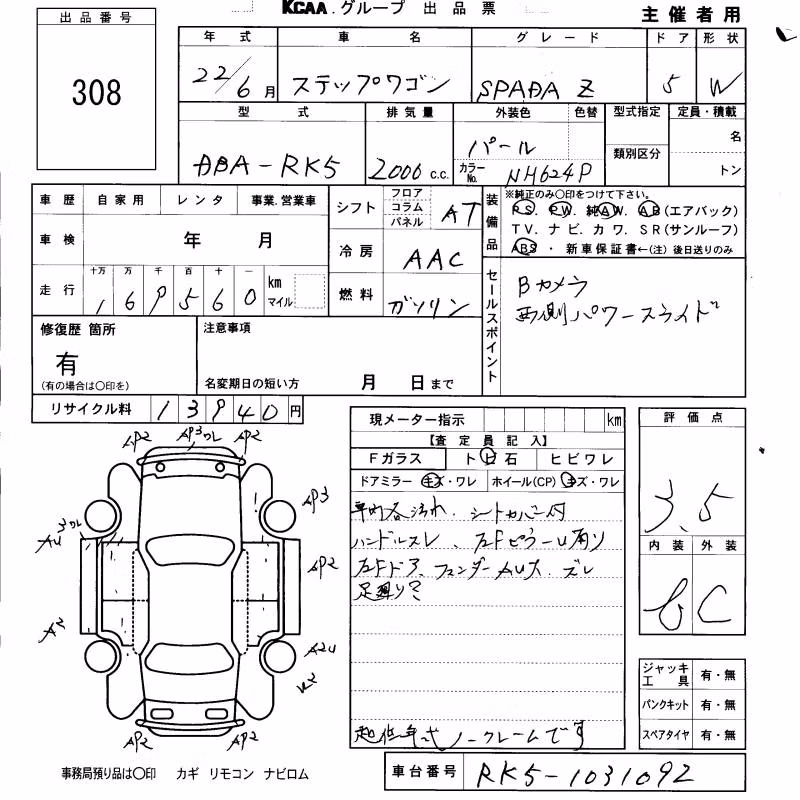 KCAA.グループ 出品票
主催者用
出品番号
308
年式 車名 グレード ドア 形状
22/6月 ステップワゴン SPADA Z 5 W
型式 排気量 外装色 色替 型式指定 定員・積載
DBA-RK5 2000 c.c. パール
カラーNo. NH624P 類別区分 名 トン
車歴 自家用 レンタ 事業.営業車
シフト フロア コラム パネル AT
装備品 ※純正のみ〇印をつけて下さい。
PS. PW. 純AW. AB(エアバック)
TV. ナビ. カワ. SR(サンルーフ)
ABS・新車保証書←(注)後日送りのみ
車検 年 月
冷房 AAC
走行 十万 万 千 百 十 一
169560 km マイル
燃料 ガソリン
セールスポイント
Bカメラ
両側パワースライド
修復歴 箇所
有
(有の場合は〇印を)
注意事項
名変期日の短い方 月 日まで
リサイクル料 13940円
現メーター指示 km
【査定員記入】
Fガラス トビ石 ヒビワレ
ドアミラー キズ・ワレ ホイール(CP) キズ・ワレ
車内各汚れ、シートカバー付
ハンドルスレ、左Fピラーu有り
左Fドア、フェンダーAU大、ズレ
足廻り?
低年式ノークレームです
評価点
3.5
内装 外装
C
ジャッキ 工具 有・無
パンクキット 有・無
スペアタイヤ 有・無
AP2 AP3ワレ AP2
AP3
AU3ワレ
AP2
A2
A2U
AP2 AP2
事務局預り品は〇印 カギ リモコン ナビロム
車台番号 RK5-1031092